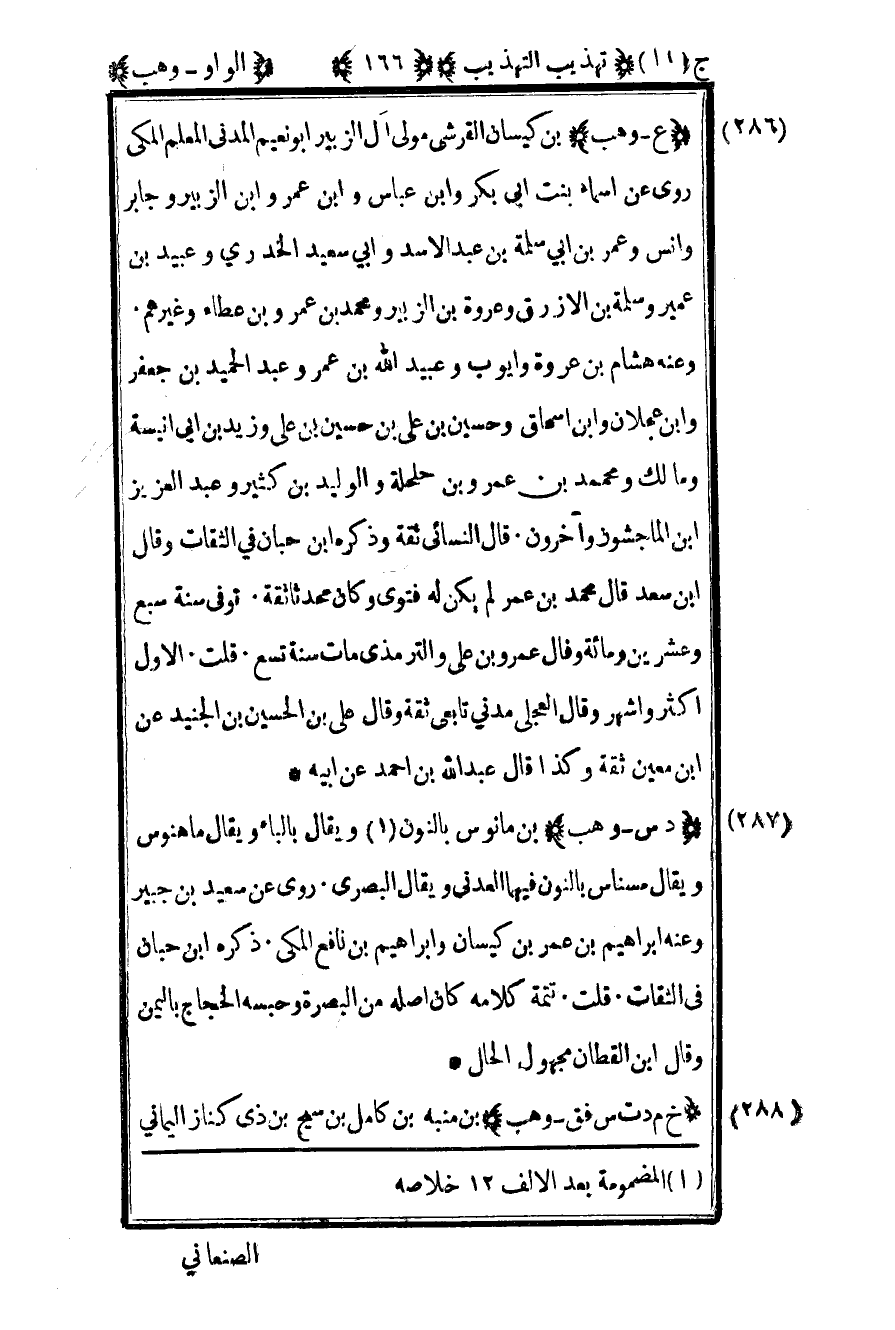 ج (١١) ﴿ تهذيب التهذيب ﴾ ﴿ ١٦٦ ﴾ ﴿ الواو - وهب ﴾
(٢٨٦) ﴿ ع - وهب ﴾ بن كيسان القرشى مولى آل الزبير ابونعيم المدنى المعلم المكى
روى عن اسماء بنت ابي بكر وابن عباس و ابن عمر و ابن الزبير و جابر
وانس وعمر بن ابي سلمة بن عبد الاسد و ابي سعيد الخدري و عبيد بن
عمير وسلمة بن الازرق وعروة بن الزبير ومحمد بن عمر و بن عطاء وغيرهم ٠
وعنه هشام بن عروة وايوب و عبيد الله بن عمر و عبد الحميد بن جعفر
وابن عجلان وابن اسحاق وحسين بن على بن حسين بن على وزيد بن ابى انيسة
ومالك و محمد بن عمرو بن حلحلة و الوليد بن كثير و عبد العزيز
ابن الماجشون وآخرون ٠ قال النسائى ثقة وذكره ابن حبان في الثقات وقال
ابن سعد قال محمد بن عمر لم يكن له فتوى وكان محدثا ثقة ٠ توفى سنة سبع
وعشرين ومائة وقال عمرو بن على والترمذى مات سنة تسع ٠ قلت ٠ الاول
اكثر واشهر وقال العجلى مدني تابعى ثقة وقال على بن الحسين بن الجنيد عن
ابن معين ثقة وكذا قال عبد الله بن احمد عن ابيه *
(٢٨٧) ﴿ د س - وهب ﴾ بن مانوس بالنون (١) و يقال بالباء و يقال ماهنوس
و يقال مسناس بالنون فيها العدنى و يقال البصرى ٠ روى عن سعيد بن جبير
وعنه ابراهيم بن عمر بن كيسان وابراهيم بن نافع المكى ٠ ذكره ابن حبان
فى الثقات ٠ قلت ٠ تتمة كلامه كان اصله من البصرة وحبسه الحجاج باليمن
وقال ابن القطان مجهول الحال *
(٢٨٨) ﴿ خ م د ت س فق - وهب ﴾ بن منبه بن كامل بن سيج بن ذى كناز اليماني
(١) المضمومة بعد الالف ١٢ خلاصه
الصنعاني